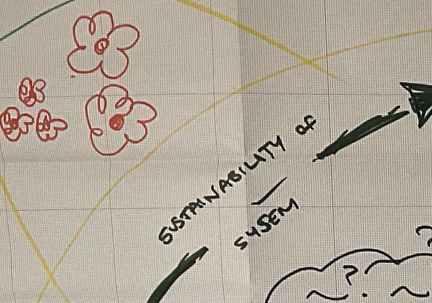 SUSTAINABILITY OF
SYSEM
?
?